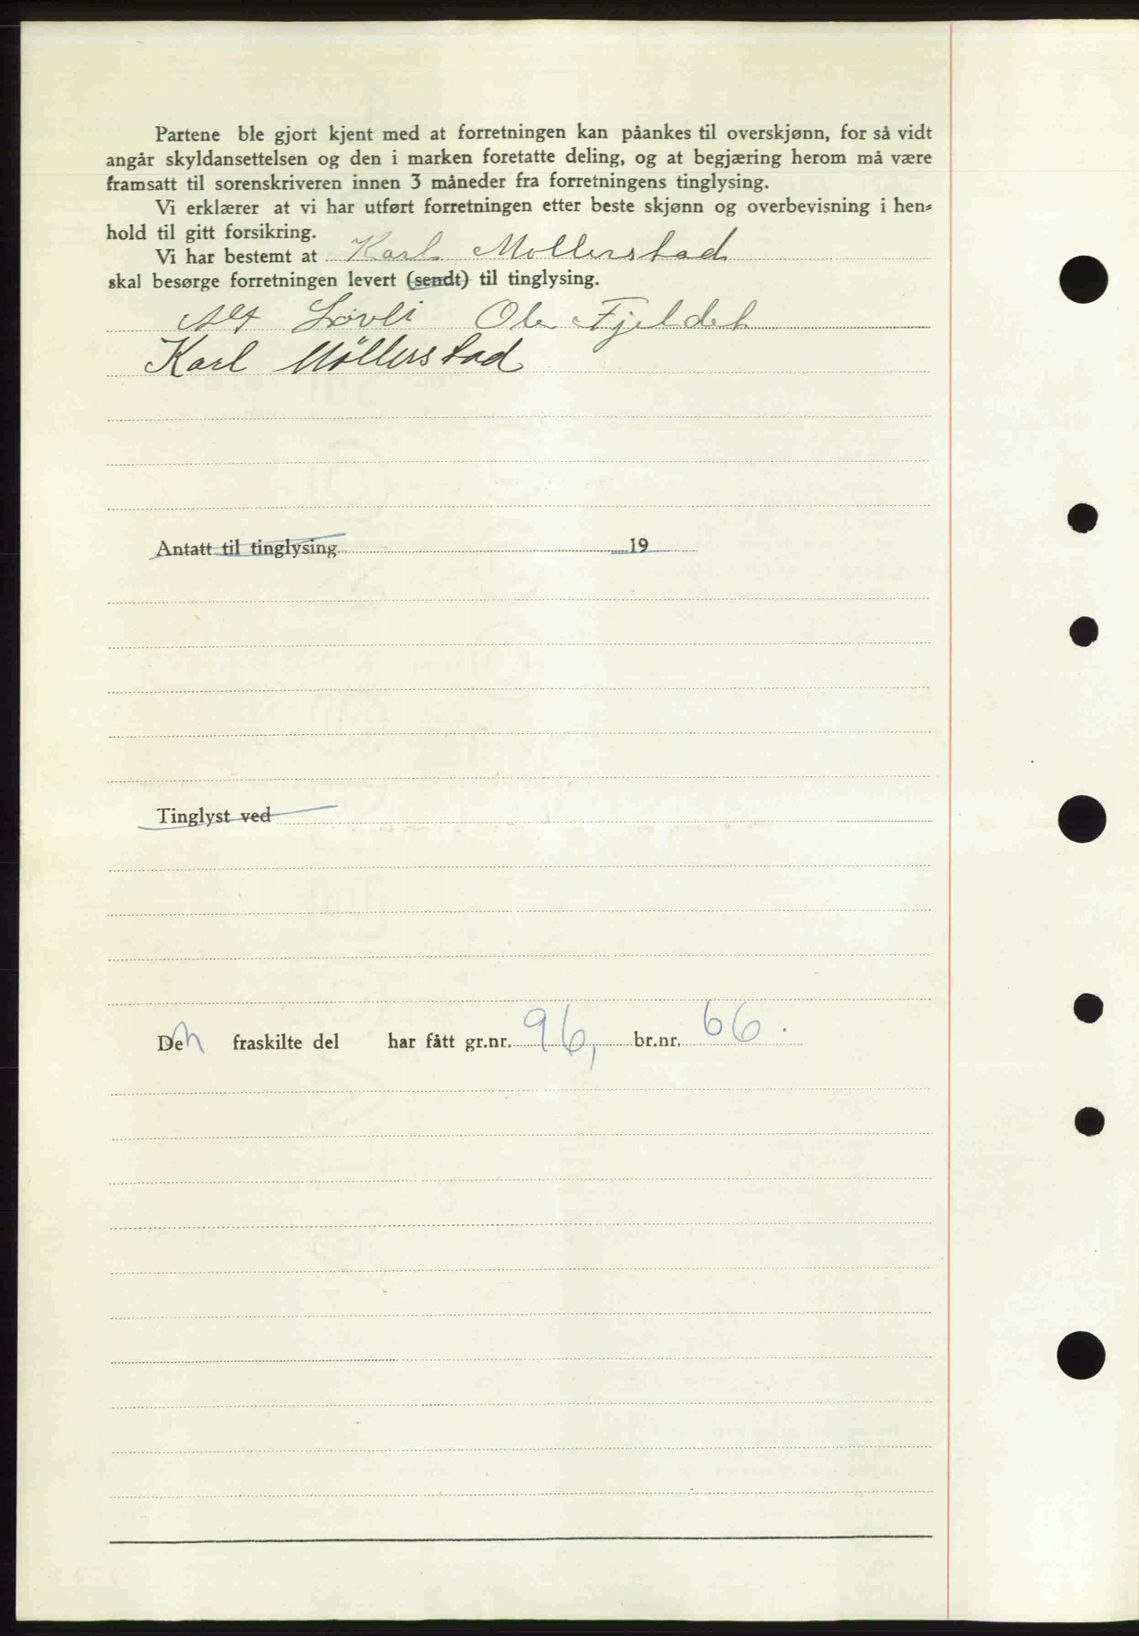 Partene ble gjort kjent med at forretningen kan påankes til overskjønn, for så vidt
angår skyldansettelsen og den i marken foretatte deling, og at begjæring herom må være
framsatt til sorenskriveren innen 3 måneder fra forretningens tinglysing.
Vi erklærer at vi har utført forretningen etter beste skjønn og overbevisning i hen=
hold til gitt forsikring.
Vi har bestemt at Karl Mollerstad
skal besørge forretningen levert (sendt) til tinglysing.
Alf Løvli Ole Fjeldet
Karl Møllerstad
Antatt til tinglysing 19
Tinglyst ved
Den fraskilte del har fått gr.nr. 96, br.nr. 66.